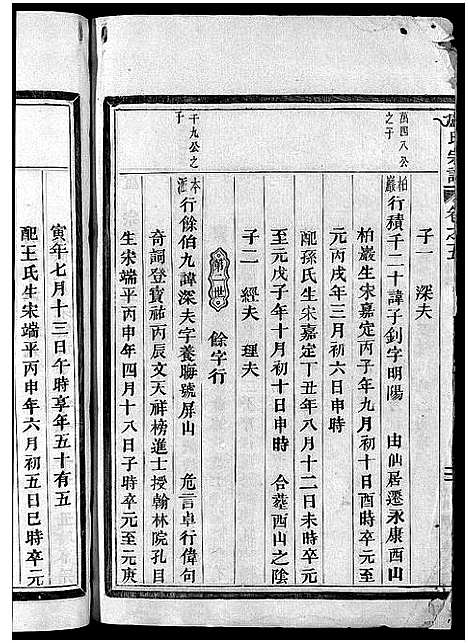 氏宗譜
子一 深夫
萬四八公之子
柏巖 行積千二十諱子釗字明陽 由仙居遷永康西山
柏巖生宋嘉定丙子年九月初十日酉時卒元至
元丙戌年三月初六日申時
配孫氏生宋嘉定丁丑年八月十二日未時卒元
至元戊子年十月初十日申時 合葬西山之陰
子二 經夫 理夫
第二世 餘字行
千九公之子
本派 行餘伯九諱深夫字養晦號屏山 危言卓行偉句
奇詞登寶祐丙辰文天祥榜進士授翰林院孔目
生宋端平丙申年四月十八日子時卒元至元庚
寅年七月十三日午時享年五十有五
配王氏生宋端平丙申年六月初五日巳時卒元